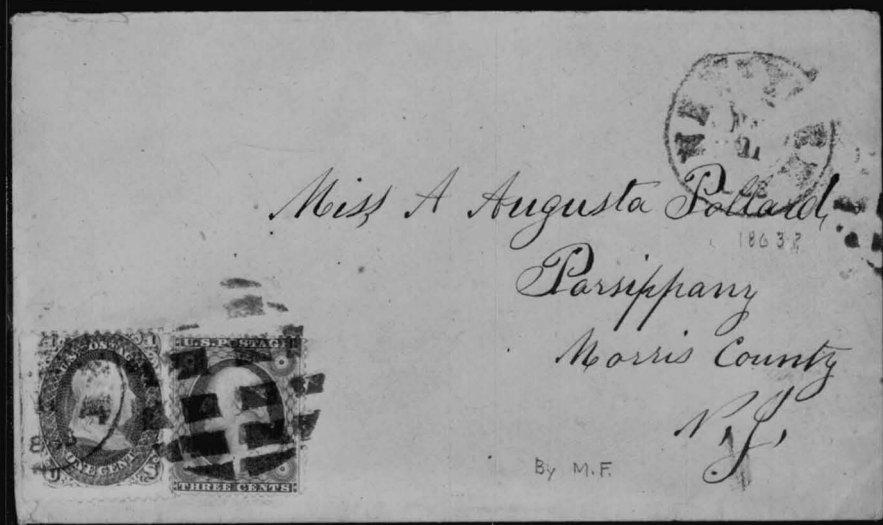 NEW
Miss A Augusta Pollard,
1863?
Parsippany
Morris County
N.J.
By M.F.
U.S. POSTAGE
ONE CENT
U.S. POSTAGE
THREE CENTS